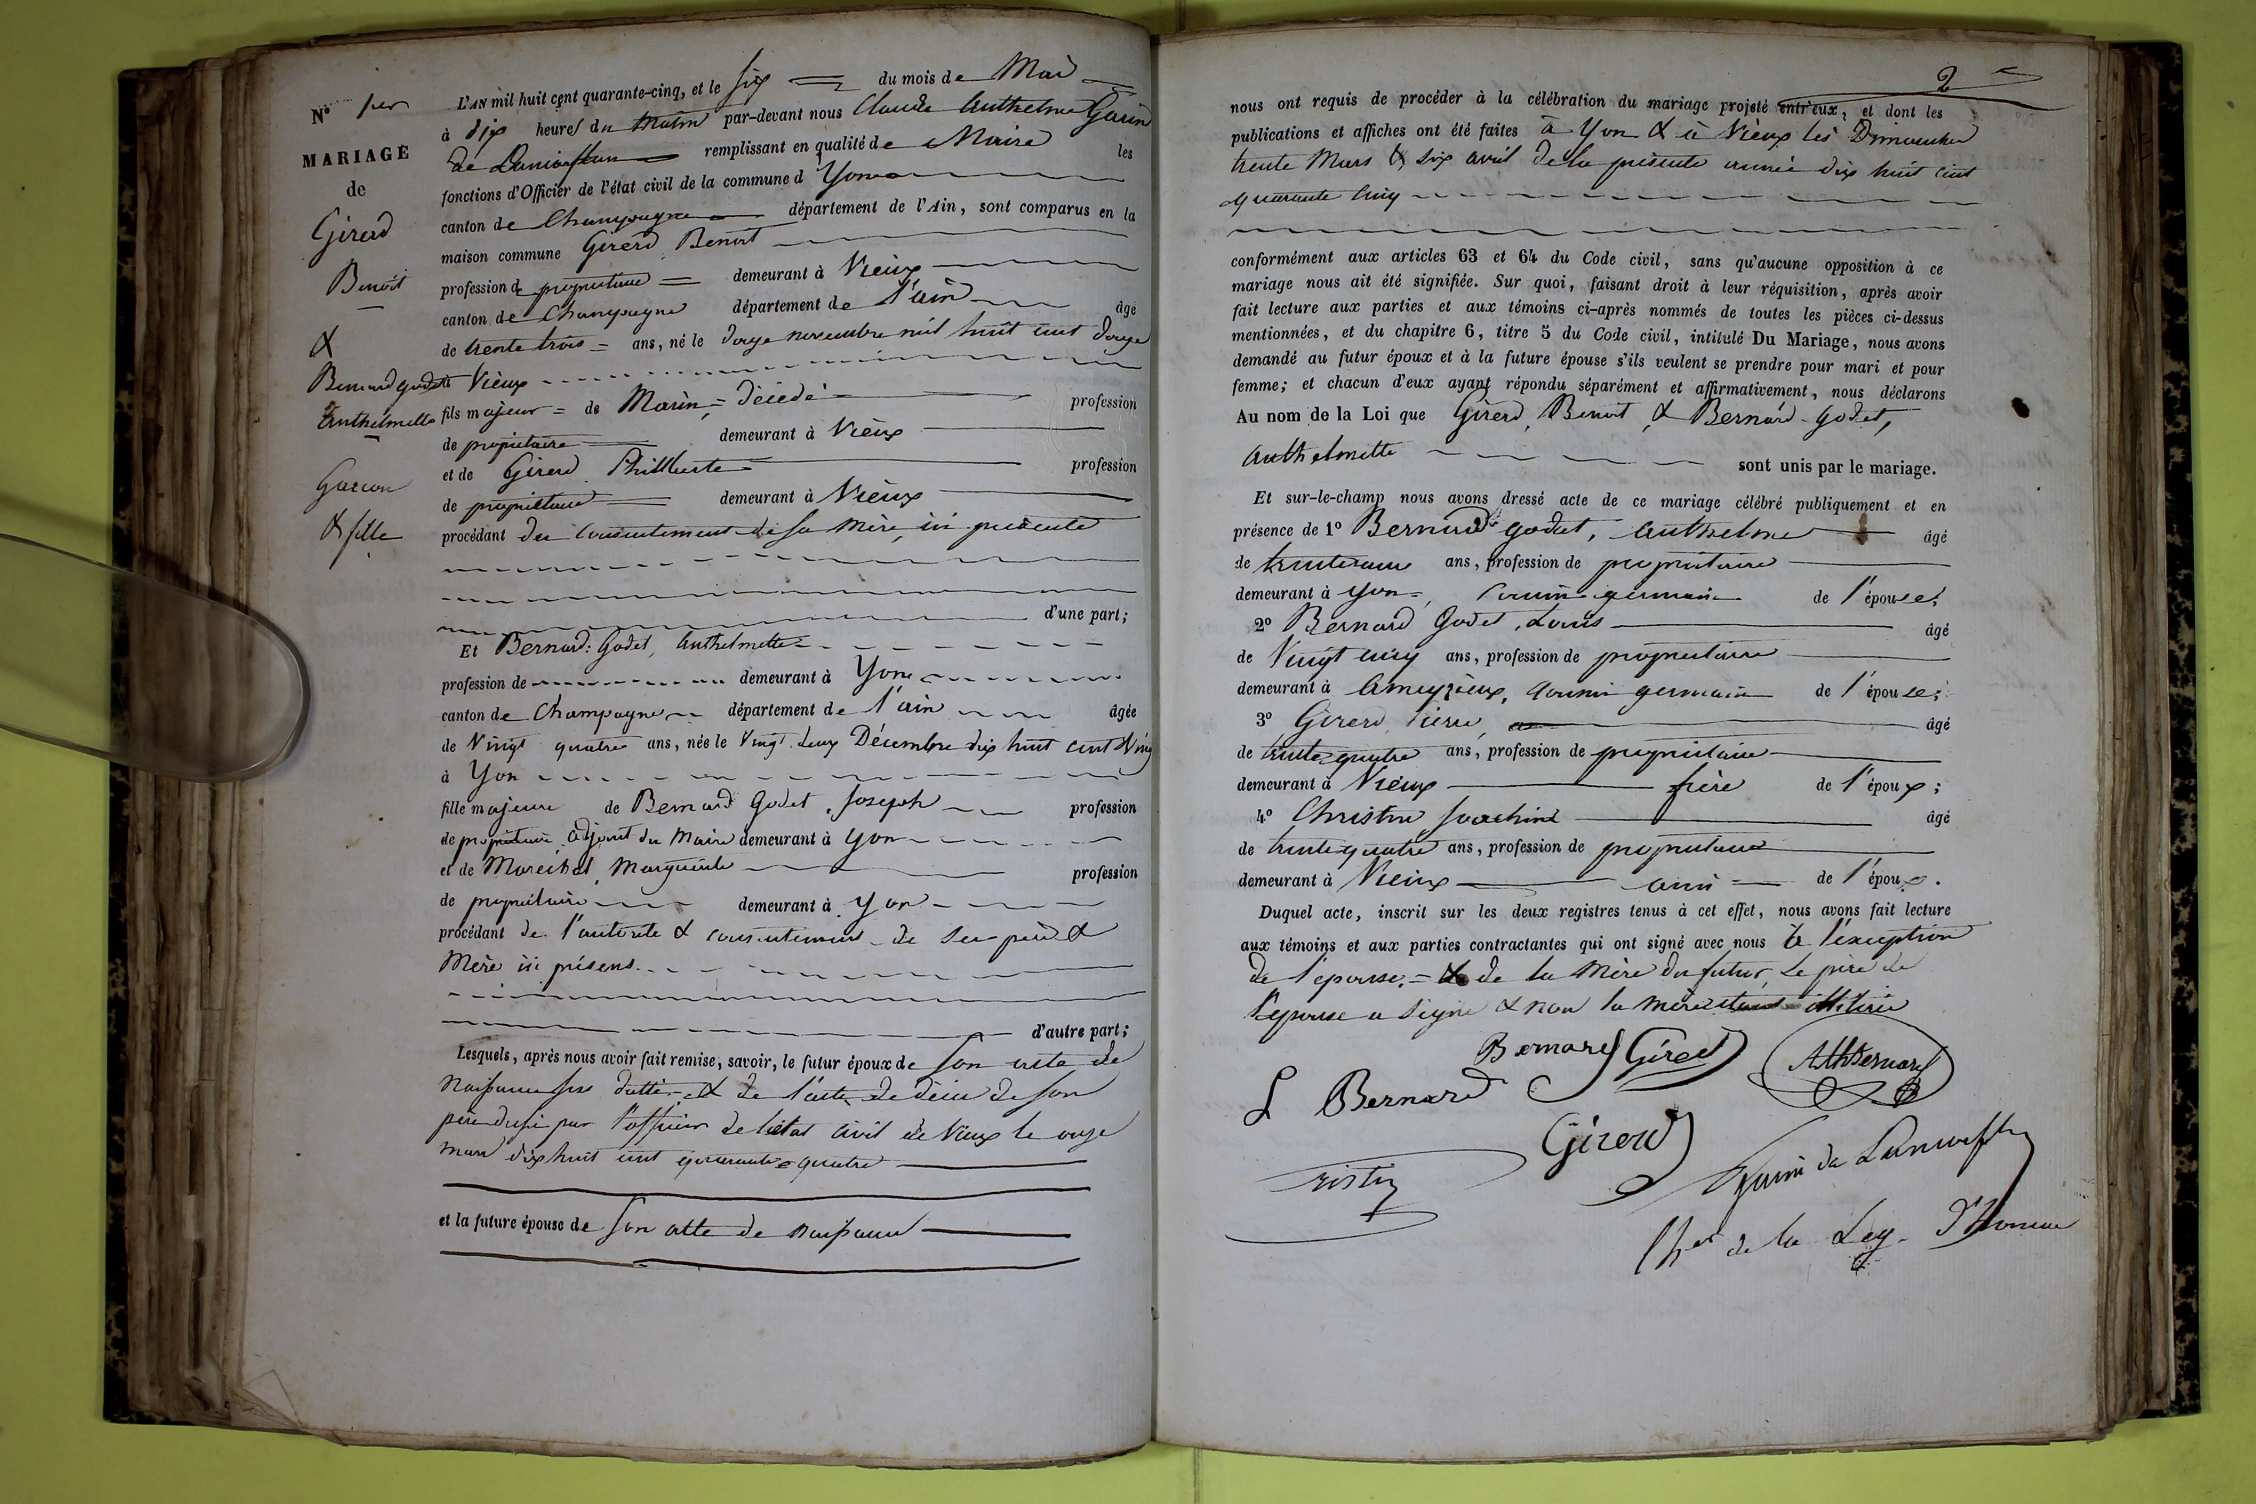 N° 1er
MARIAGE
de
Girerd
Benoit
&
Bernard godet
Anthelmette
Garcon
& fille
L'AN mil huit cent quarante-cinq, et le six du mois de Mai
à dix heures du Matin par-devant nous Claude Anthelme Garin
de remplissant en qualité de Maire les
fonctions d'Officier de l'état civil de la commune d Yon
canton de Champagne département de l'Ain, sont comparus en la
maison commune Girerd Benoit
profession de propriétaire demeurant à Vieux
canton de Champagne département de l'ain âgé
de trente trois ans, né le douze novembre mil huit cent douze
à Vieux
fils majeur de Marin, décédé profession
de propriétaire demeurant à Vieux
et de Girerd Philiberte profession
de propriétaire demeurant à Vieux
procédant du consentement de sa Mère, ici présente
d'une part;
Et Bernard-Godet, Anthelmette
profession de demeurant à Yon
canton de Champagne département de l'ain âgée
de Vingt quatre ans, née le Vingt deux Décembre dix huit cent Vingt
à Yon
fille majeure de Bernard Godet, Joseph profession
de propriétaire adjoint du Maire demeurant à Yon
et de Maréchal, Marguerite profession
de propriétaire demeurant à Yon
procédant de l'autorité & consentement de ses père &
Mère ici présens
d'autre part;
Lesquels, après nous avoir fait remise, savoir, le futur époux de son acte de
Naissance & de l'acte de décès de son
père par l'officier de l'état civil de Vieux le onze
mars dix huit cent quarante quatre
et la future épouse de son acte de naissance
2e
nous ont requis de procéder à la célébration du mariage projeté entr'eux, et dont les
publications et affiches ont été faites à Yon & à Vieux les Dimanches
trente Mars & six avril de la présente année dix huit cent
quarante cinq
conformément aux articles 63 et 64 du Code civil, sans qu'aucune opposition à ce
mariage nous ait été signifiée. Sur quoi, faisant droit à leur réquisition, après avoir
fait lecture aux parties et aux témoins ci-après nommés de toutes les pièces ci-dessus
mentionnées, et du chapitre 6, titre 5 du Code civil, intitulé Du Mariage, nous avons
demandé au futur époux et à la future épouse s'ils veulent se prendre pour mari et pour
femme; et chacun d'eux ayant répondu séparément et affirmativement, nous déclarons
Au nom de la Loi que Girerd, Benoit, & Bernard-godet,
Anthelmette sont unis par le mariage.
Et sur-le-champ nous avons dressé acte de ce mariage célébré publiquement et en
présence de 1° Bernard godet, Anthelme âgé
de ans, profession de propriétaire
demeurant à Yon, Cousin germain de l'épouse;
2° Bernard Godet, Louis âgé
de Vingt cinq ans, profession de propriétaire
demeurant à Ameyzieux, Cousin germain de l'épouse;
3° Girerd, Pierre, âgé
de trente quatre ans, profession de propriétaire
demeurant à Vieux frère de l'époux;
4° Christin Joachim âgé
de trente quatre ans, profession de propriétaire
demeurant à Vieux ami de l'époux.
Duquel acte, inscrit sur les deux registres tenus à cet effet, nous avons fait lecture
aux témoins et aux parties contractantes qui ont signé avec nous à l'exception
de l'épouse, & de la Mère du futur, le père de
l'épouse a signé & non la mère illitérée
Bernard Girerd Ath Bernard
L Bernard
Girerd
Garin de
Cher de la Leg. d'honneur